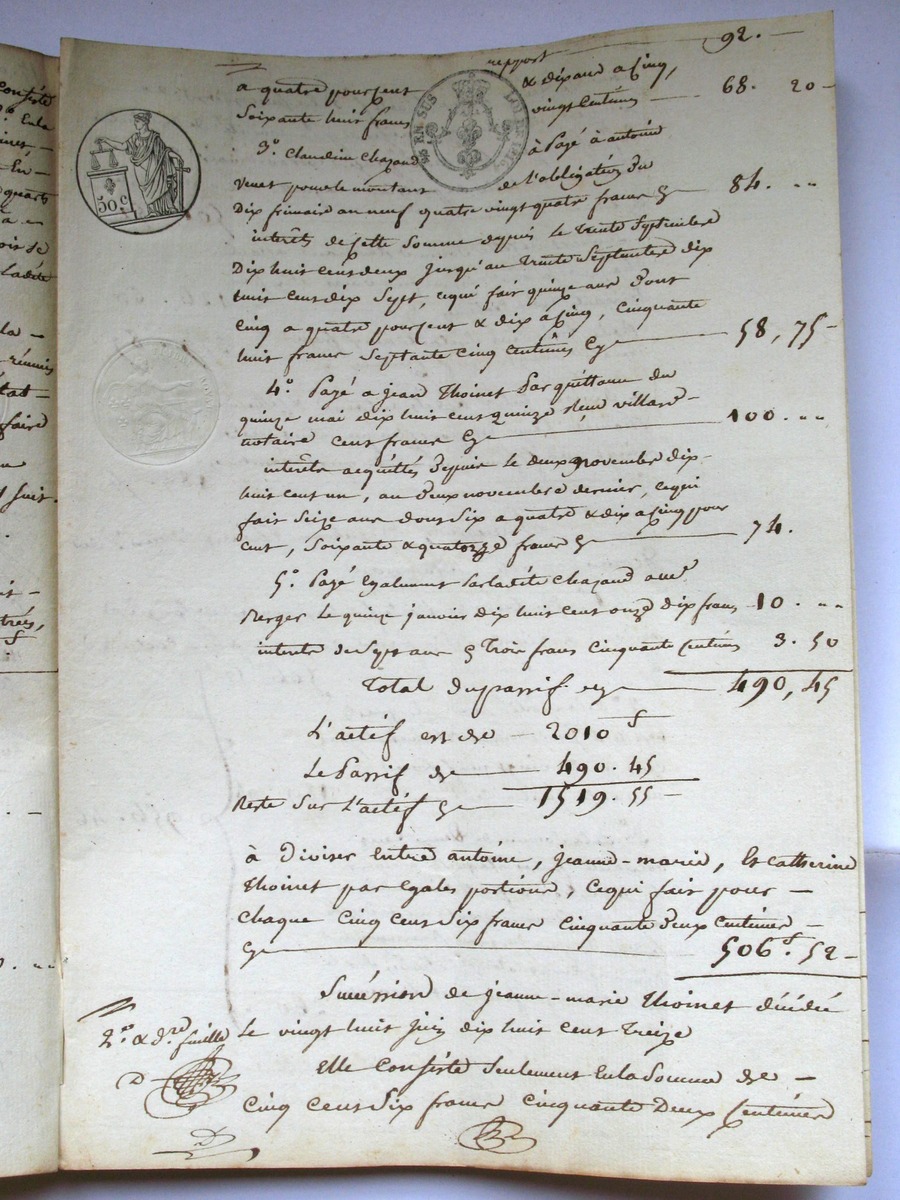 report 92. —
a quatre pour cent & dix aud a cinq,
soixante huit francs vingt centimes — 68. 20
3º Claudine Chazaud à Payé à antoine
Venet pour le montant de l'obligation du
Dix frimaire an neuf quatre vingt quatre francs Cy — 84. ..
interêts de cette somme depuis le trente Septembre
Dix huit cent deux jusqu'au trente Septembre dix
huit cent dix Sept, cequi fait quinze ans dont
cinq a quatre pour cent & dix a cinq, cinquante
huit francs septante cinq centimes Cy — 58, 75 —
4º Payé a jean thoinet par quittance du
quinze mai dix huit cent quinze reçu villard
notaire cent francs Cy — 100. ..
interêts acquittés depuis le deux novembre dix-
huit cent un, au deux novembre dernier, cequi
fait seize ans dont six a quatre & dix a cinq pour
cent, soixante & quatorze francs Cy — 74.
5º Payé egalement par ladite chazaud a mr
Berger le quinze janvier dix huit cent onze dix francs — 10. ..
interets de sept ans Cy trois francs cinquante centimes 3. 50
Total du passif cy — 490, 45
L'actif est de — 2010 f
Le Passif de — 490. 45
Reste sur L'actif Cy — 1519. 55 —
à Diviser entre antoine, jeanne-marie, et catherine
thoinet par egales portions, cequi fait pour —
chaque cinq cent six francs cinquante deux centimes —
Cy — 506f. 52 —
Succession de jeanne-marie thoinet décédée
le vingt huit juin dix huit cent treize
Elle consiste seulement en la somme de —
cinq cent six francs cinquante deux centimes
2º & dre feuille
50 c